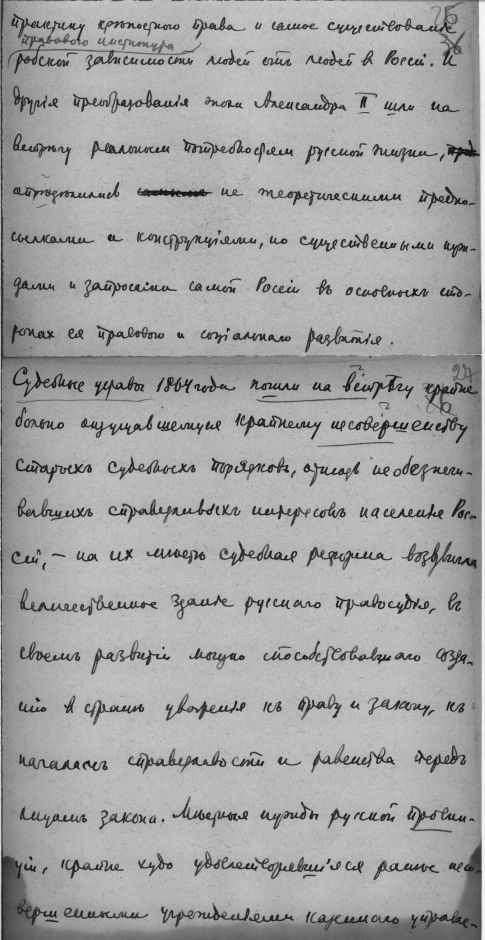 25
26
практику крѣпостного права и самое существованіе
правового института
рабской зависимости людей отъ людей в Россіи. И
другія преобразованія эпохи Александра II шли на
встрѣчу реальнымъ потребностям русской жизни,
опредѣлялись не теоретическими предпо-
сылками и конструкціями, но существенными нуж-
дами и запросами самой Россіи въ основныхъ сто-
ронах ея правового и соціальнаго развитія.
27
26
Судебные уставы 1864 года пошли на встрѣчу крайне
больно ощущавшемуся крайнему несовершенству
старыхъ судебныхъ порядковъ, отнюдь не обезпечи-
вавшихъ справедливыхъ интересовъ населенія Рос-
сіи, — на их мѣсто судебная реформа воздвигла
величественное зданіе русскаго правосудія, въ
своемъ развитіи могучо способствовавшаго созда-
нію в странѣ уваженія къ праву и закону, къ
началамъ справедливости и равенства передъ
лицомъ закона. Мѣстныя нужды русской провин-
ціи, крайне худо удовлетворявшіяся ранѣе несо-
вершенными учрежденіями казеннаго управле-